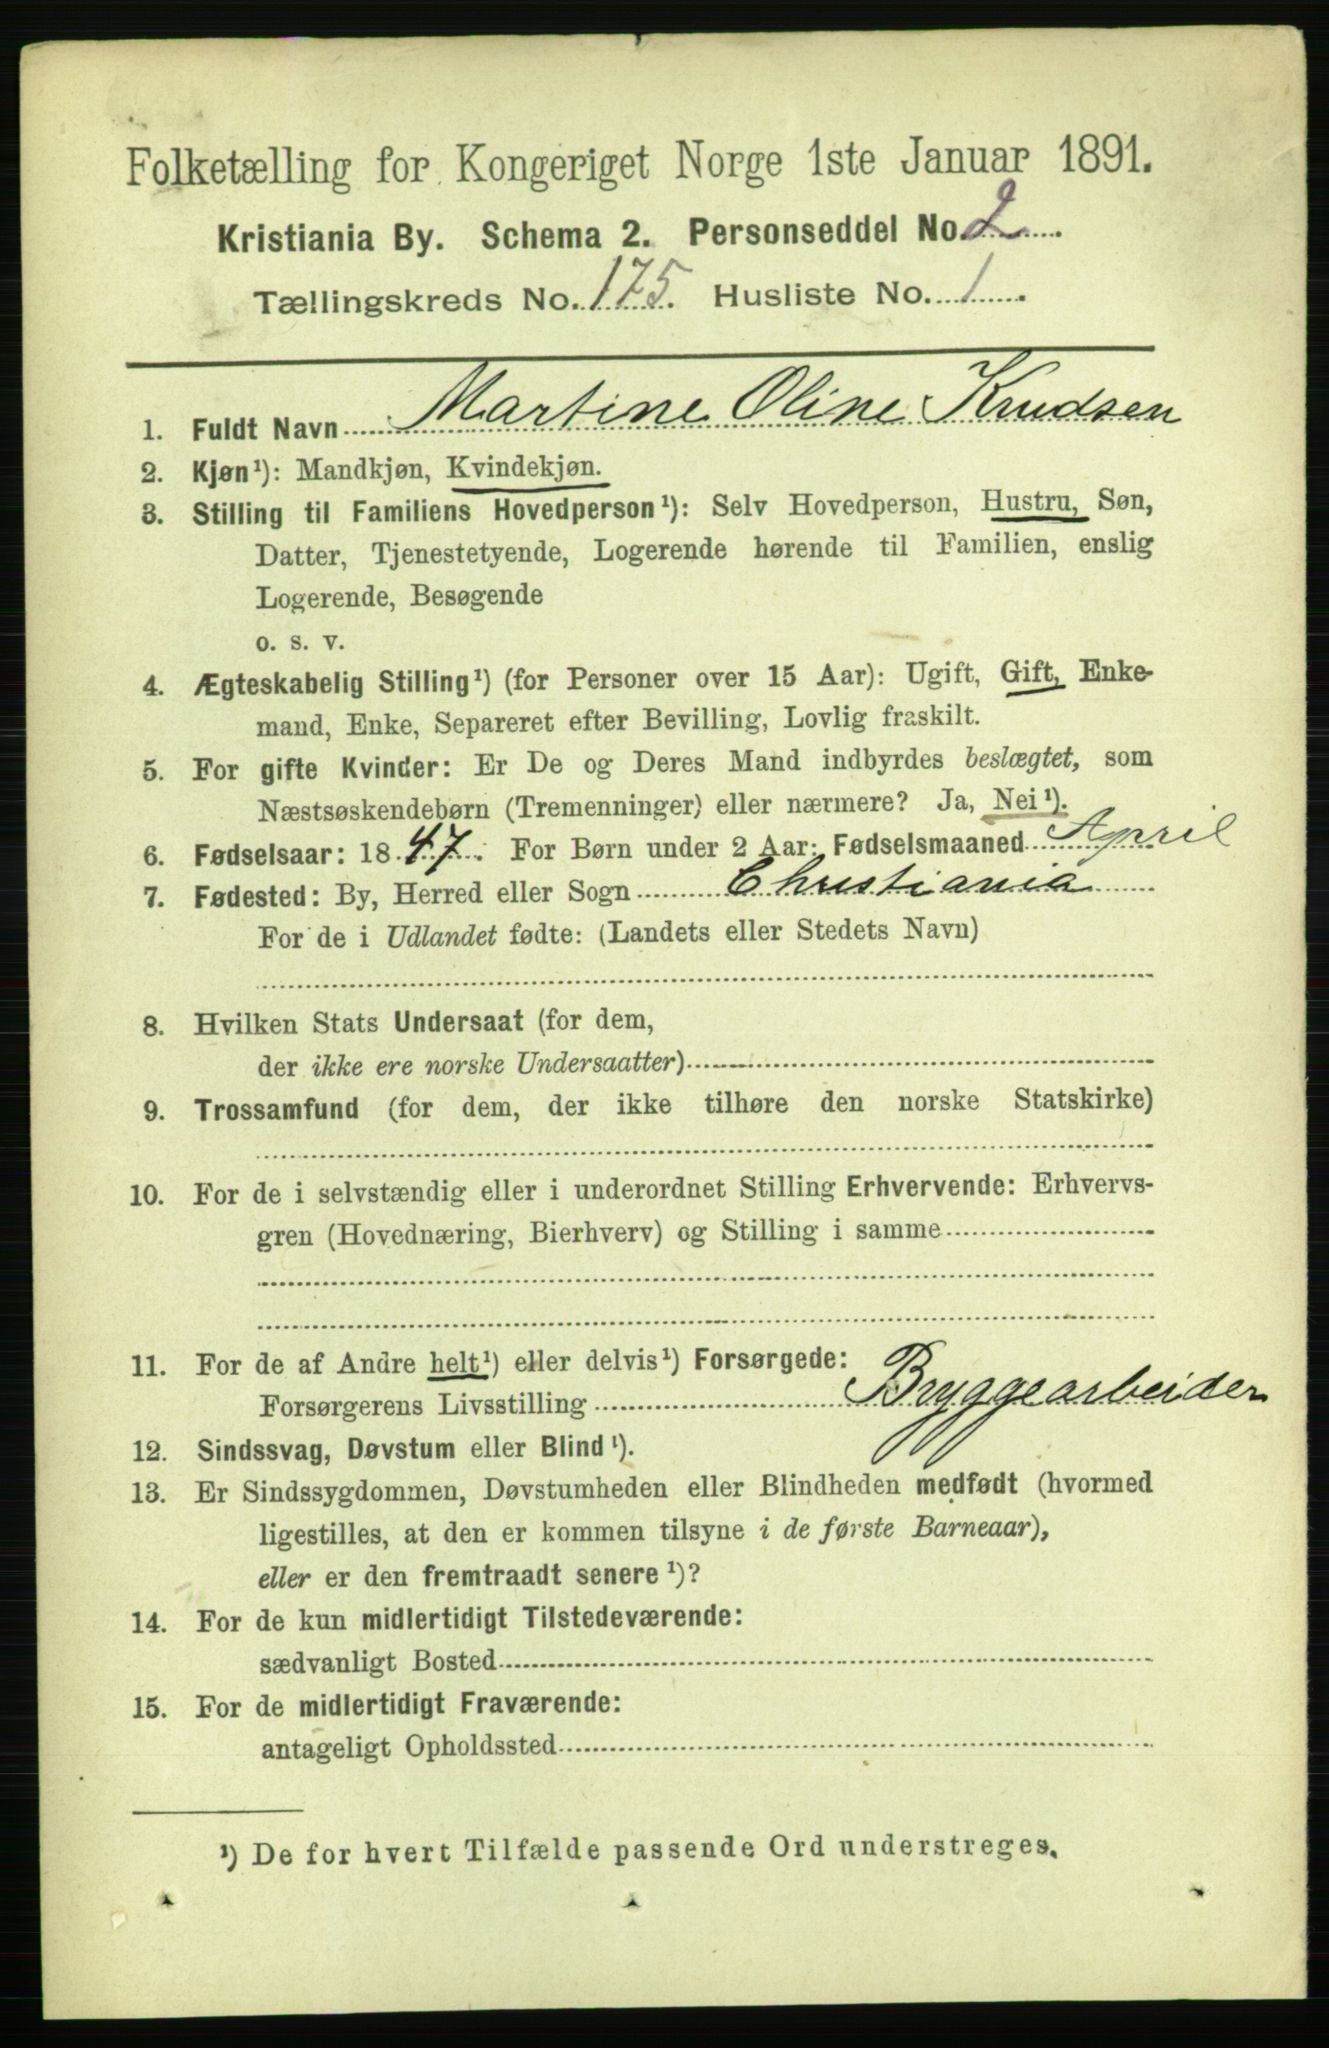 Folketælling for Kongeriget Norge 1ste Januar 1891.
Kristiania By. Schema 2. Personseddel No. 2
Tællingskreds No. 175. Husliste No. 1
1. Fuldt Navn Martine Oline Knudsen
2. Kjøn¹): Mandkjøn, Kvindekjøn.
3. Stilling til Familiens Hovedperson¹): Selv Hovedperson, Hustru, Søn,
Datter, Tjenestetyende, Logerende hørende til Familien, enslig
Logerende, Besøgende
o. s. v.
4. Ægteskabelig Stilling¹) (for Personer over 15 Aar): Ugift, Gift, Enke-
mand, Enke, Separeret efter Bevilling, Lovlig fraskilt.
5. For gifte Kvinder: Er De og Deres Mand indbyrdes beslægtet, som
Næstsøskendebørn (Tremenninger) eller nærmere? Ja, Nei¹).
6. Fødselsaar: 1847. For Børn under 2 Aar: Fødselsmaaned April
7. Fødested: By, Herred eller Sogn Christiania
For de i Udlandet fødte: (Landets eller Stedets Navn)
8. Hvilken Stats Undersaat (for dem,
der ikke ere norske Undersaatter)
9. Trossamfund (for dem, der ikke tilhøre den norske Statskirke)
10. For de i selvstændig eller i underordnet Stilling Erhvervende: Erhvervs-
gren (Hovednæring, Bierhverv) og Stilling i samme
11. For de af Andre helt¹) eller delvis¹) Forsørgede:
Forsørgerens Livsstilling Bryggearbeider
12. Sindssvag, Døvstum eller Blind¹).
13. Er Sindssygdommen, Døvstumheden eller Blindheden medfødt (hvormed
ligestilles, at den er kommen tilsyne i de første Barneaar),
eller er den fremtraadt senere¹)?
14. For de kun midlertidigt Tilstedeværende:
sædvanligt Bosted
15. For de midlertidigt Fraværende:
antageligt Opholdssted
¹) De for hvert Tilfælde passende Ord understreges.